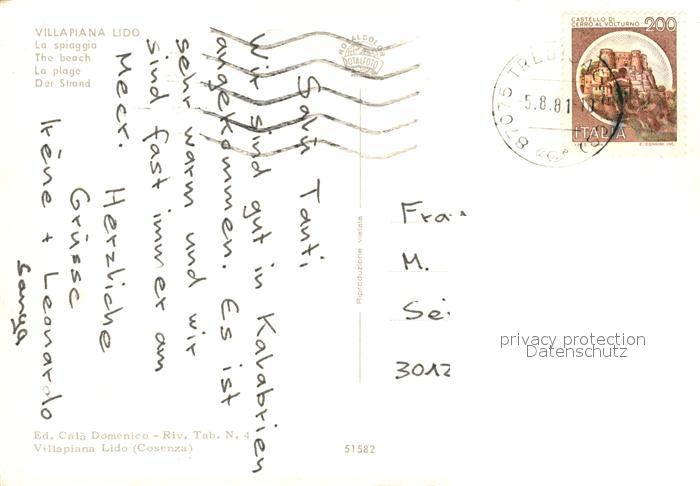 VILLAPIANA LIDO
La spiaggia
The beach
La plage
Der Strand
Salü Tanti,
Wir sind gut in Kalabrien
angekommen. Es ist
sehr warm und wir
sind fast immer am
Meer.
Herzliche
Grüsse
Irène + Leonardo
Sanya
ROTALCOLOR
ROTALFOTO
CASTELLO DI
CERRO AL VOLTURNO 200
ITALIA
87075 TREBISACCE
-5.8.81
Riproduzione vietata
Fra
M.
Sei
3012
privacy protection
Datenschutz
Ed. Calà Domenico - Riv. Tab. N. 4
Villapiana Lido (Cosenza)
51582